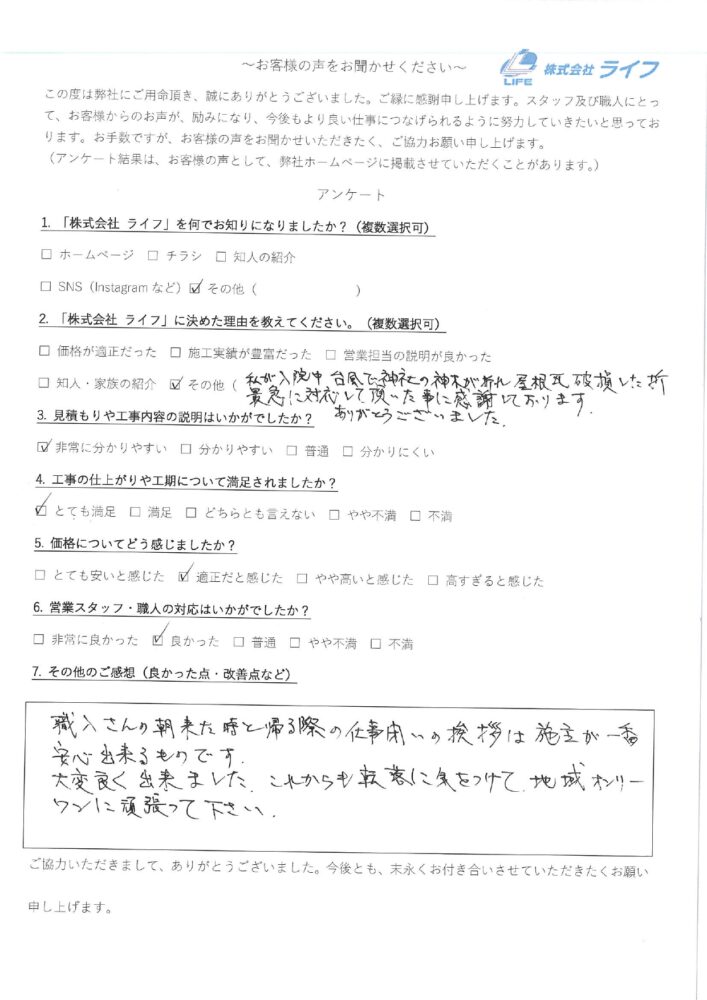 ～お客様の声をお聞かせください～
LIFE 株式会社 ライフ
この度は弊社にご用命頂き、誠にありがとうございました。ご縁に感謝申し上げます。スタッフ及び職人にとっ
て、お客様からのお声が、励みになり、今後もより良い仕事につなげられるように努力していきたいと思ってお
ります。お手数ですが、お客様の声をお聞かせいただきたく、ご協力お願い申し上げます。
（アンケート結果は、お客様の声として、弊社ホームページに掲載させていただくことがあります。）
アンケート
1. 「株式会社 ライフ」を何でお知りになりましたか？（複数選択可）
□ ホームページ □ チラシ □ 知人の紹介
□ SNS（Instagram など） ☑ その他（ ）
2. 「株式会社 ライフ」に決めた理由を教えてください。（複数選択可）
□ 価格が適正だった □ 施工実績が豊富だった □ 営業担当の説明が良かった
□ 知人・家族の紹介 ☑ その他（ 私が入院中 台風で神社の神木が折れ 屋根瓦 破損した所
最急に対応して頂いた事に感謝しております
ありがとうございました.
3. 見積もりや工事内容の説明はいかがでしたか？
☑ 非常に分かりやすい □ 分かりやすい □ 普通 □ 分かりにくい
4. 工事の仕上がりや工期について満足されましたか？
☑ とても満足 □ 満足 □ どちらとも言えない □ やや不満 □ 不満
5. 価格についてどう感じましたか？
□ とても安いと感じた ☑ 適正だと感じた □ やや高いと感じた □ 高すぎると感じた
6. 営業スタッフ・職人の対応はいかがでしたか？
□ 非常に良かった ☑ 良かった □ 普通 □ やや不満 □ 不満
7. その他のご感想（良かった点・改善点など）
職人さんの朝来た時と帰る際の仕事 の挨拶は施主が一番
安心出来るものです.
大変良く出来ました. これからも転落に気をつけて、地域オンリー
ワンに頑張って下さい.
ご協力いただきまして、ありがとうございました。今後とも、末永くお付き合いさせていただきたくお願い
申し上げます。